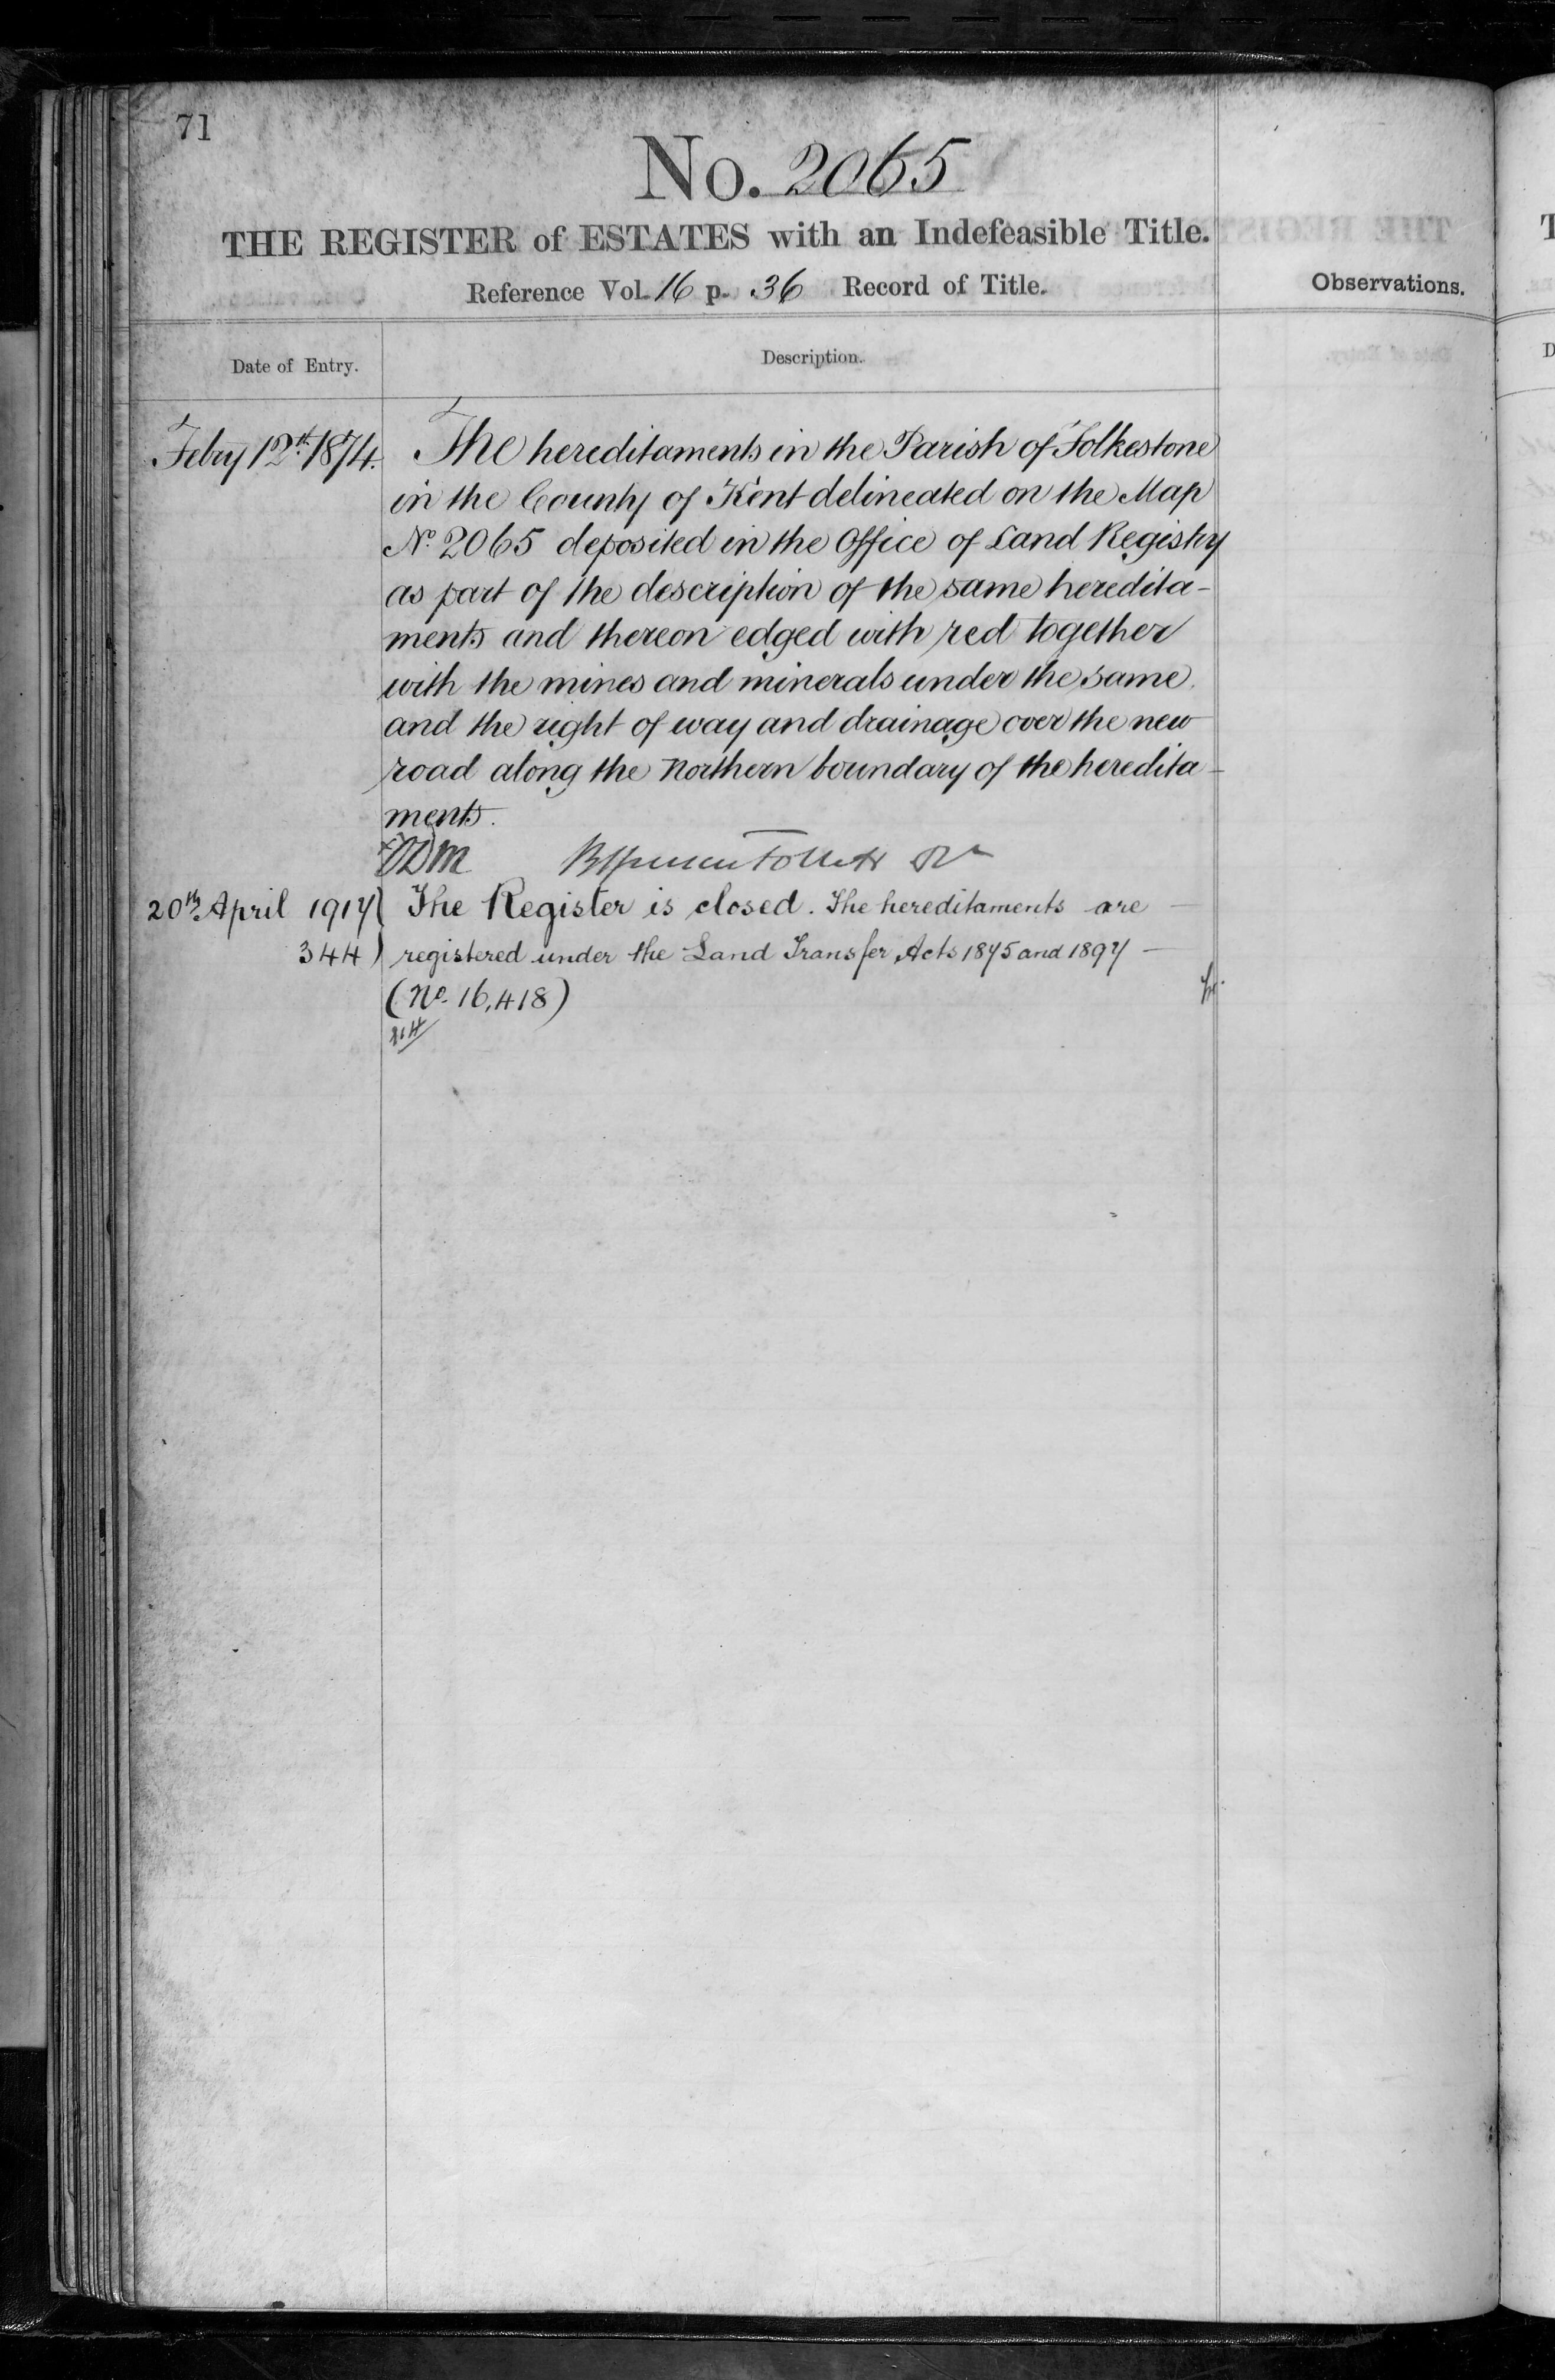 71
No. 2065
THE REGISTER of ESTATES with an Indefeasible Title.
Reference Vol. 16 p. 36 Record of Title.
Observations.
Date of Entry.
Description.
Febry 12th 1874.
The hereditaments in the Parish of Folkestone
in the County of Kent delineated on the Map
No. 2065 deposited in the Office of Land Registry
as part of the description of the same heredita-
ments and thereon edged with red together
with the mines and minerals under the same
and the right of way and drainage over the new
road along the Northern boundary of the heredita-
ments.
20th April 1917
344
The Register is closed. The hereditaments are —
registered under the Land Transfer Acts 1875 and 1897 —
(No. 16,418)